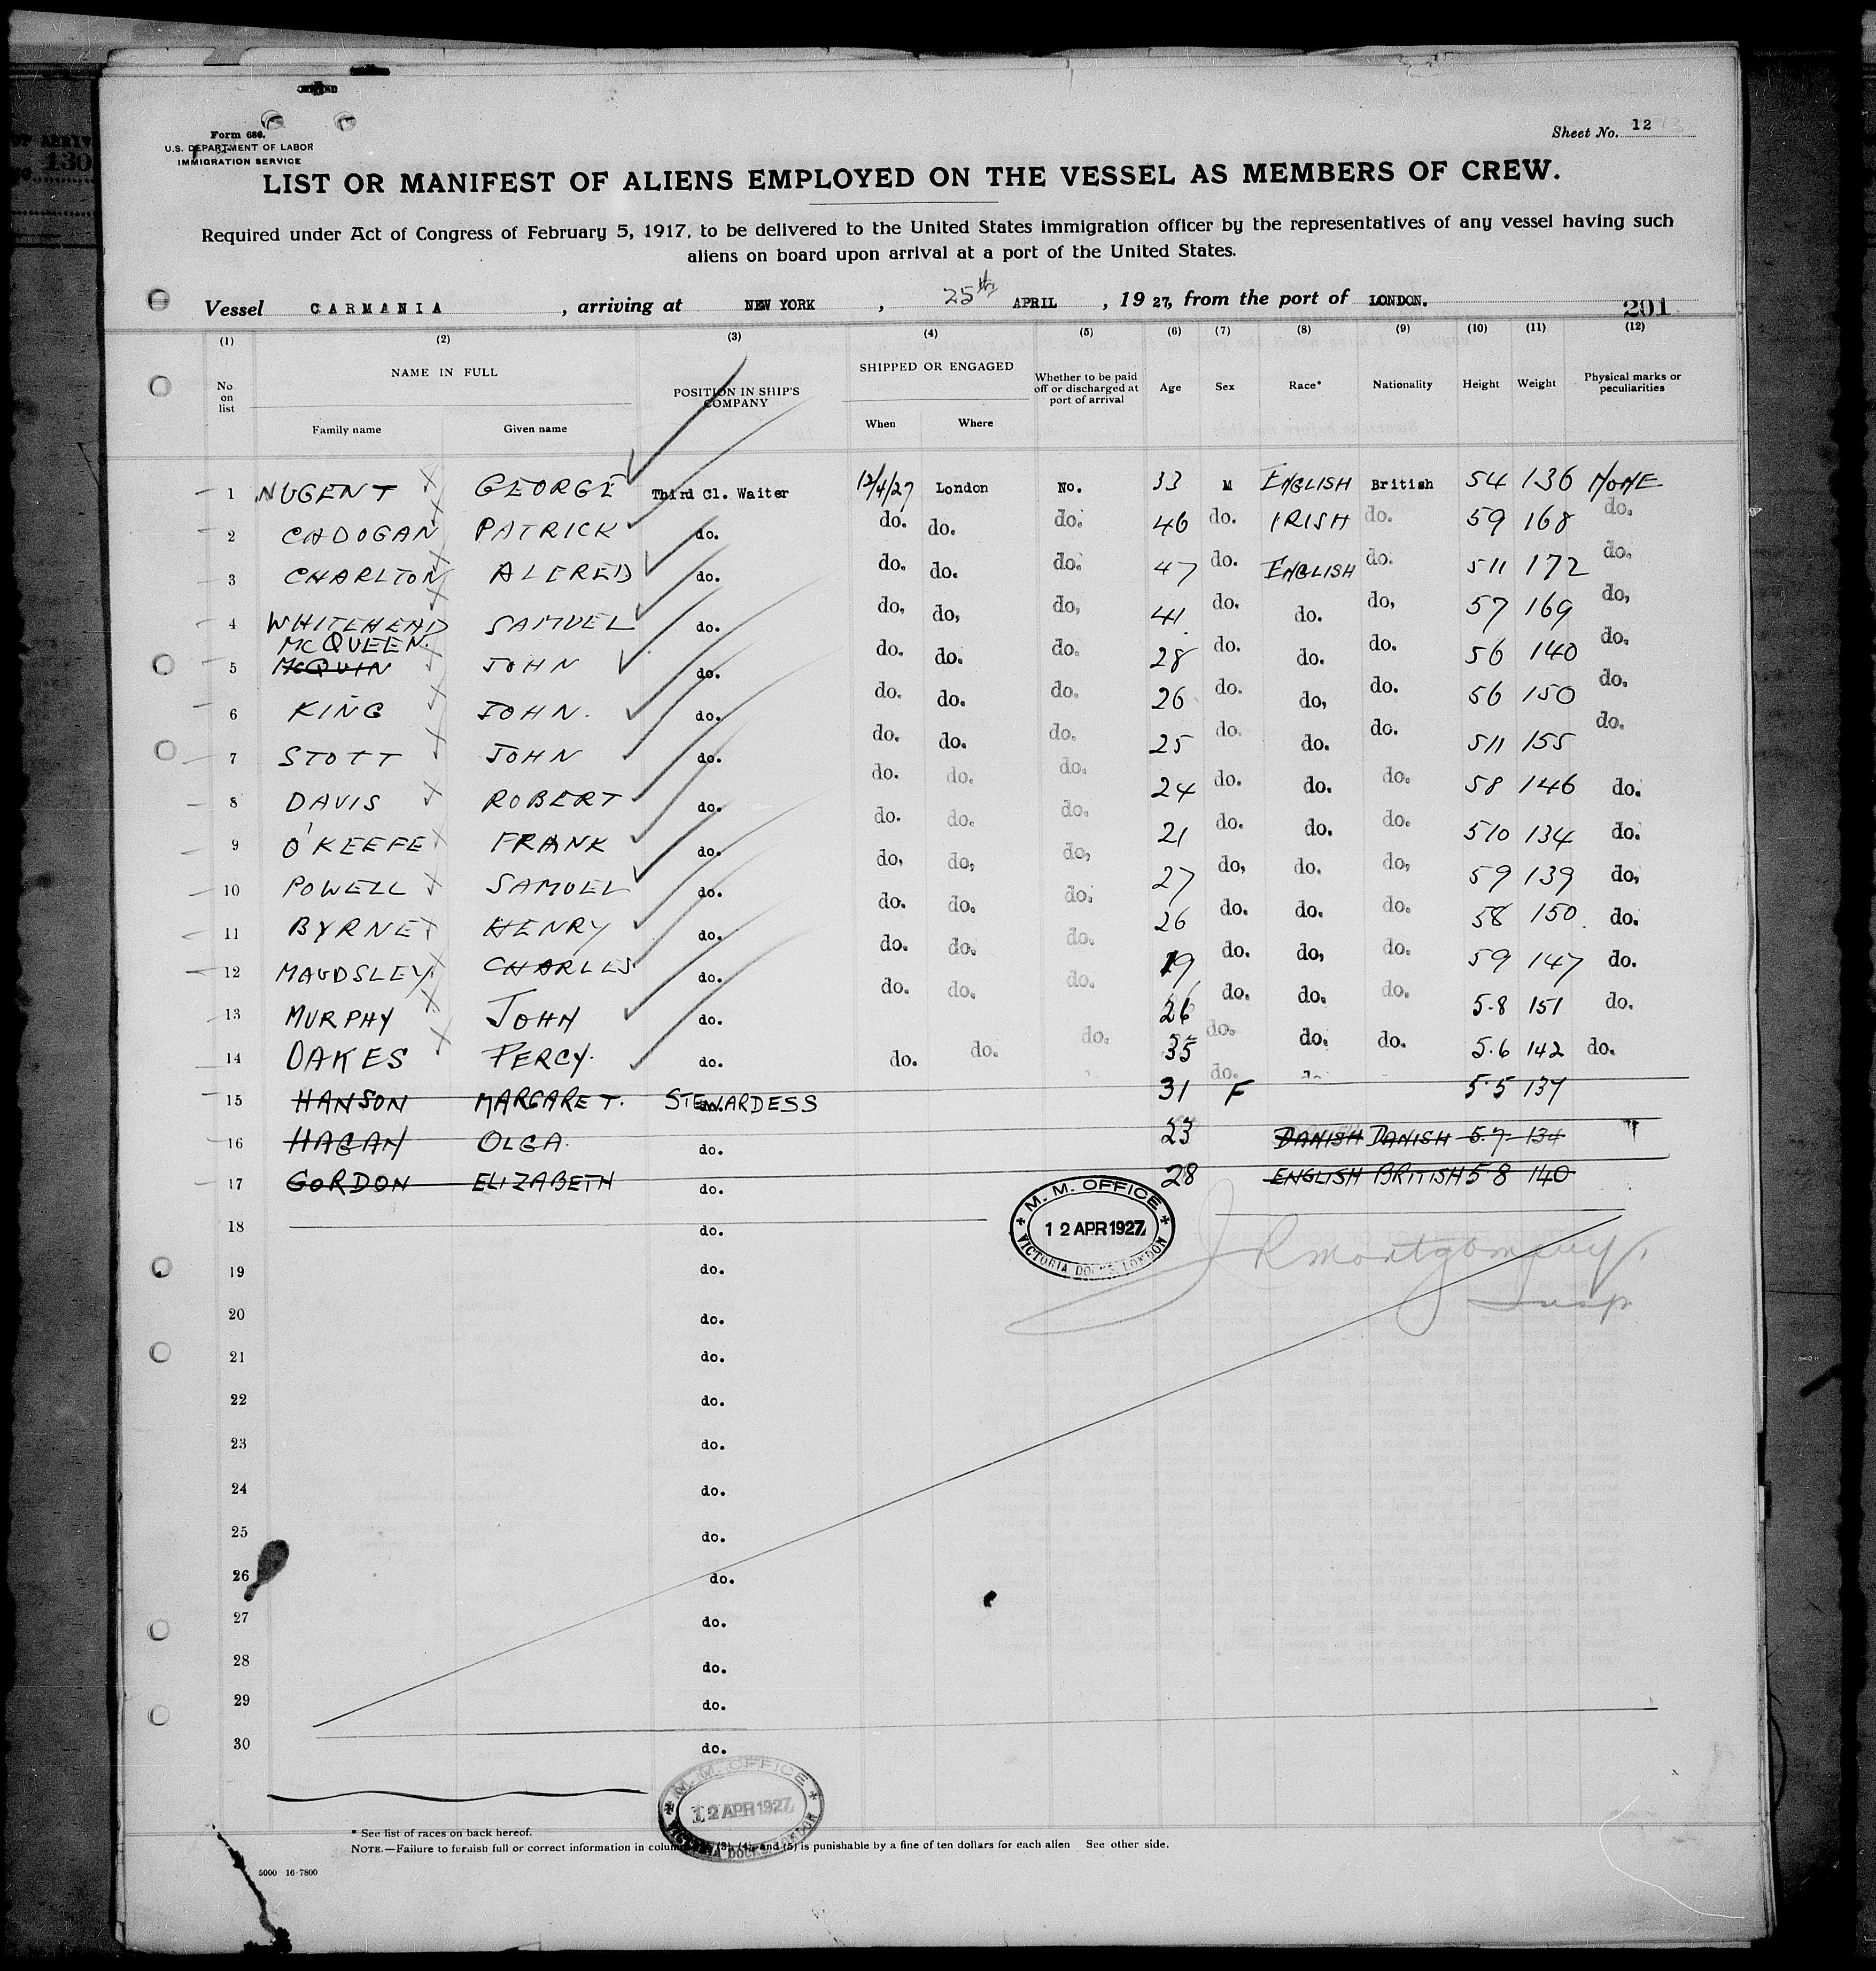 Form 680.
U.S. DEPARTMENT OF LABOR
IMMIGRATION SERVICE
Sheet No. 12
LIST OR MANIFEST OF ALIENS EMPLOYED ON THE VESSEL AS MEMBERS OF CREW.
Required under Act of Congress of February 5, 1917, to be delivered to the United States immigration officer by the representatives of any vessel having such
aliens on board upon arrival at a port of the United States.
Vessel CARMANIA, arriving at NEW YORK, 25th APRIL, 1927, from the port of LONDON.
201
(1) (2) (3) (4) (5) (6) (7) (8) (9) (10) (11) (12)
No on list NAME IN FULL Family name Given name POSITION IN SHIP'S COMPANY SHIPPED OR ENGAGED When Where Whether to be paid off or discharged at port of arrival Age Sex Race* Nationality Height Weight Physical marks or peculiarities
1 NUGENT GEORGE Third Cl. Waiter 12/4/27 London No. 33 M ENGLISH British 54 136 NONE
2 CADOGAN PATRICK do. do. do. do. 46 do. IRISH do. 59 168 do.
3 CHARLTON ALFRED do. do. do. do. 47 do. ENGLISH do. 511 172 do.
4 WHITEHEAD SAMUEL do. do, do, do, 41 do. do. do, 57 169 do,
McQUEEN.
5 McQUIN JOHN do. do. do. do. 28 do. do. do. 56 140 do.
6 KING JOHN. do. do. do. do. 26 do. do, do. 56 150 do.
7 STOTT JOHN do. do. do. do. 25 do. do. do. 511 155 do.
8 DAVIS ROBERT do. do. do. do. 24 do. do. do. 58 146 do.
9 O'KEEFE FRANK do. do. do. do. 21 do. do. do. 510 134 do.
10 POWELL SAMUEL do. do, do, do, 27 do, do. do, 59 139 do,
11 BYRNE HENRY do. do. do. do. 26 do. do. do. 58 150. do.
12 MAUDSLEY CHARLES do. do. do. do. 19 do. do, do. 59 147 do.
13 MURPHY JOHN do. do. do. do. 26 do. do. do. 5.8 151 do.
14 OAKES PERCY. do. do. do. do. 35 do. do. do. 5.6 142 do.
15 HANSON MARGARET. STEWARDESS 31 do. F 5.5 137
16 HAGAN OLGA. do. 23 DANISH DANISH 5.7. 134
17 GORDON ELIZABETH do. 28 ENGLISH BRITISH 5 8 140
18 do.
M. M. OFFICE
12 APR 1927
VICTORIA DOCKS, LONDON
J R Montgomery
Insp
19 do.
20 do.
21 do.
22 do.
23 do.
24 do.
25 do.
26 do.
27 do.
28 do.
29 do.
30 do.
M. M. OFFICE
12 APR 1927
VICTORIA DOCKS, LONDON
* See list of races on back hereof.
NOTE.—Failure to furnish full or correct information in (3), (4), and (5) is punishable by a fine of ten dollars for each alien See other side.
5000 16-7800
130